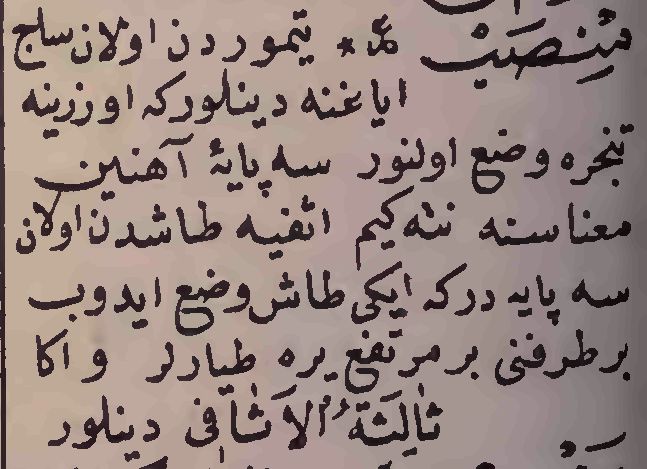 مِنْصَبْ ع * تيموردن اولان ساج
اياغنه دينلوركه اوزرينه
تنجره وضع اولنور سه پايۀ آهنين
معناسنه نته كيم اثفيه طاشدن اولان
سه پايه دركه ايكى طاش وضع ايدوب
بر طرفنى بر مرتفع يره طيارلر و اكا
ثَالِثَةُ الْاَثَافى دينلور